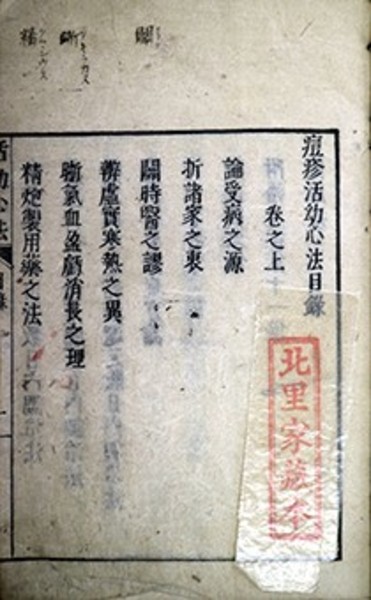 痘疹活幼心法目錄
卷之上
論受病之源
折諸家之衷
闢時醫之謬
辨虛實寒熱之異
晰氣血盈虧消長之理
精炮製用藥之法
活幼心法
目錄
北里家藏本